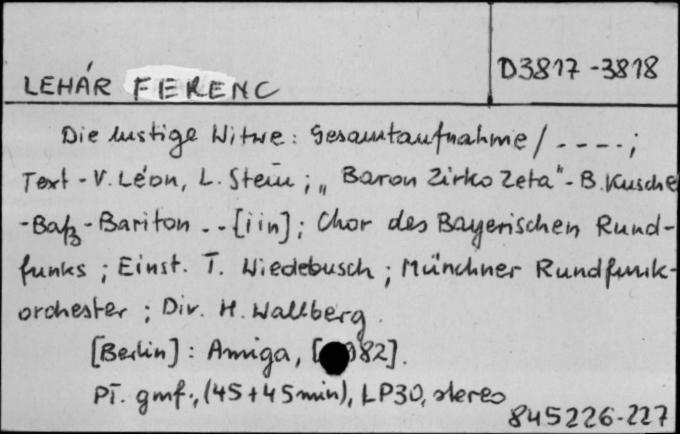 D3817-3818
LEHÁR FERENC
Die lustige Witwe: Gesamtaufnahme / ----;
Text - V. Léon, L. Stein; „Baron Zirko Zeta" - B. Kusche
-Baß-Bariton -- [i in]; Chor des Bayerischen Rund-
funks; Einst. T. Wiedebusch; Münchner Rundfunk-
orchester; Dir. H. Wallberg.
[Berlin]: Amiga, [ 982].
Pł. gmf., (45+45min), LP30, stereo
845226-227